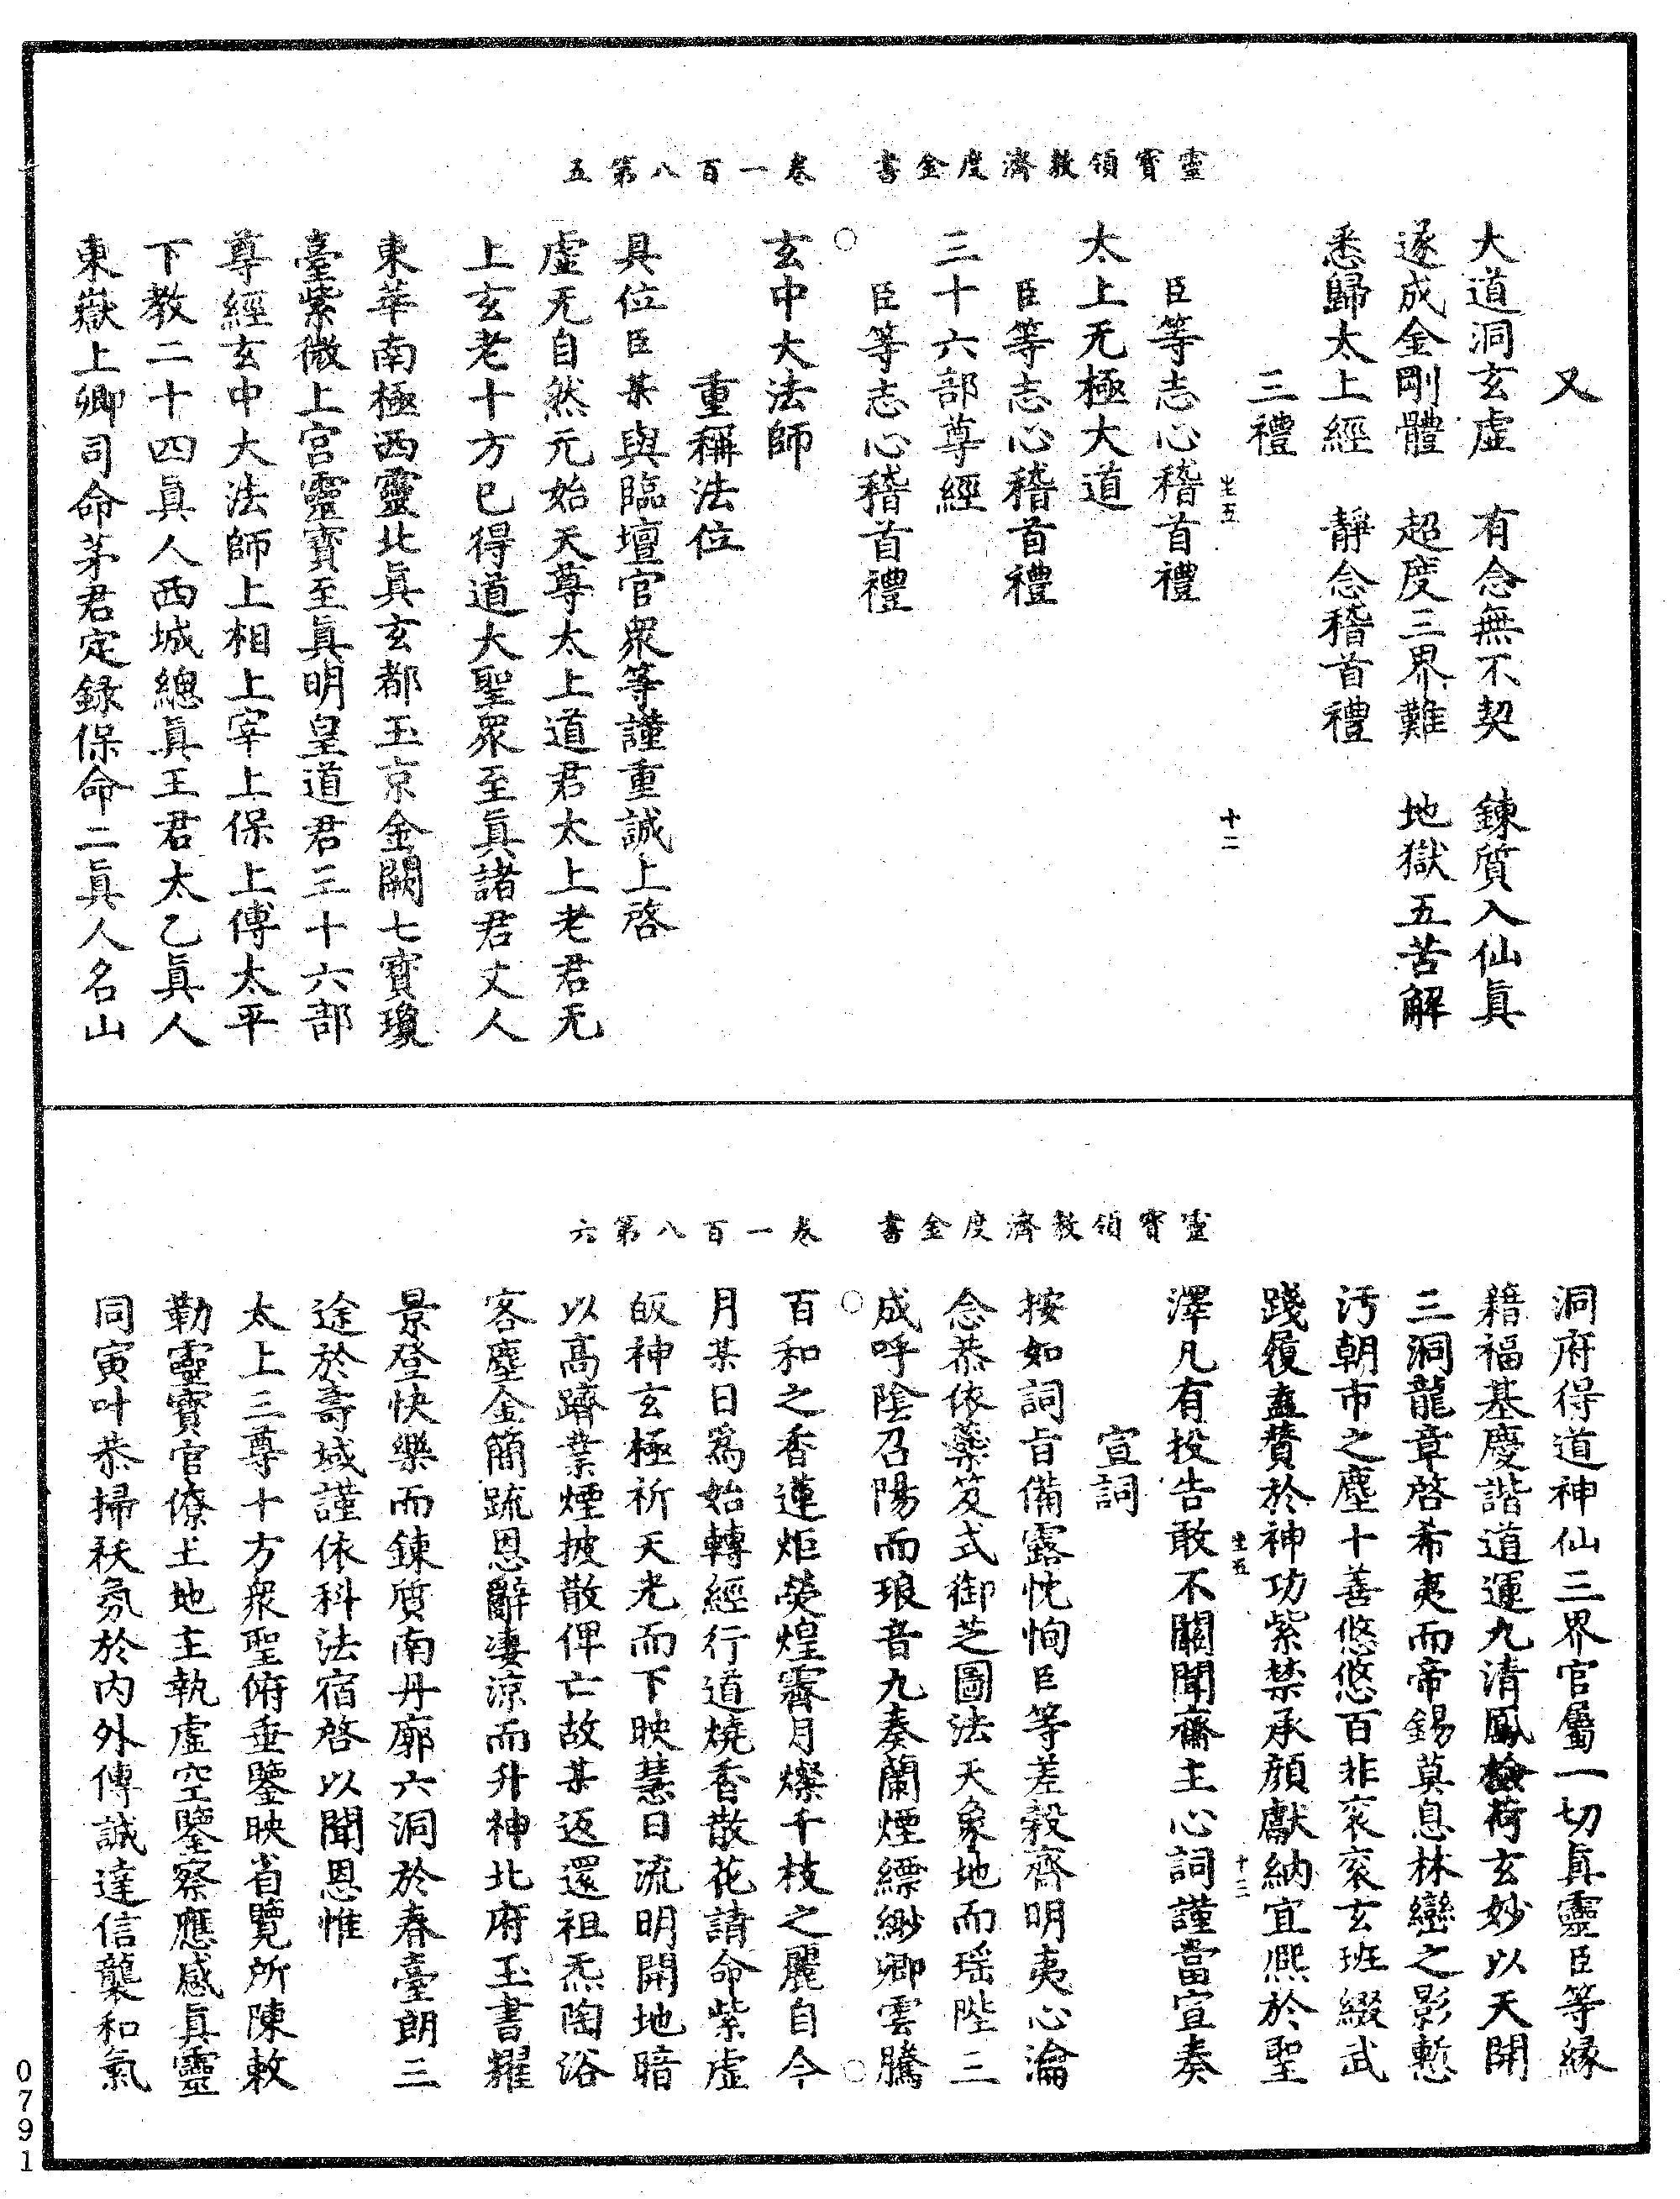 靈寶領教濟度金書　卷一百八第五
又
大道洞玄虛　有念無不契　鍊質入仙眞
遂成金剛體　超度三界難　地獄五苦解
悉歸太上經　靜念稽首禮
三禮
坐五　十二
臣等志心稽首禮
太上无極大道
臣等志心稽首禮
三十六部尊經
臣等志心稽首禮
玄中大法師
重稱法位
具位臣某與臨壇官眾等謹重誠上啓
虛无自然元始天尊太上道君太上老君无
上玄老十方已得道大聖眾至眞諸君丈人
東華南極西靈北眞玄都玉京金闕七寶瓊
臺紫微上宮靈寶至眞明皇道君三十六部
尊經玄中大法師上相上宰上保上傅太平
下教二十四眞人西城總眞王君太乙眞人
東嶽上卿司命茅君定錄保命二眞人名山
靈寶領教濟度金書　卷一百八第六
洞府得道神仙三界官屬一切眞靈臣等緣
藉福基慶諧道運九清鳳檢荷玄妙以天開
三洞龍章啓希夷而帝錫莫息林巒之影慙
汚朝市之塵十善悠悠百非衮衮玄班綴武
踐履盍賛於神功紫禁承顔獻納宜熙於聖
坐五　十三
澤凡有投告敢不關聞齋主心詞謹當宣奏
宣詞
按如詞旨備露忱恂臣等差穀齋明夷心瀹
念恭依蘂笈式御芝圖法天象地而瑶陛三
成呼陰召陽而琅音九奏蘭煙縹緲卿雲騰
百和之香蓮炬熒煌霽月燦千枝之麗自今
月某日爲始轉經行道燒香散花請命紫虛
皈神玄極祈天光而下映慧日流明開地暗
以高躋業煙披散俾亡故某返還祖炁陶浴
客塵金簡䟽恩辭凄涼而升神北府玉書耀
景登快樂而鍊質南丹廓六洞於春臺朗三
途於壽域謹依科法宿啓以聞恩惟
太上三尊十方衆聖俯垂鑒映省覽所陳敕
勒靈寶官僚土地主執虛空鑒察應感眞靈
同寅叶恭掃祅氛於内外傳誠達信襲和氣
0791